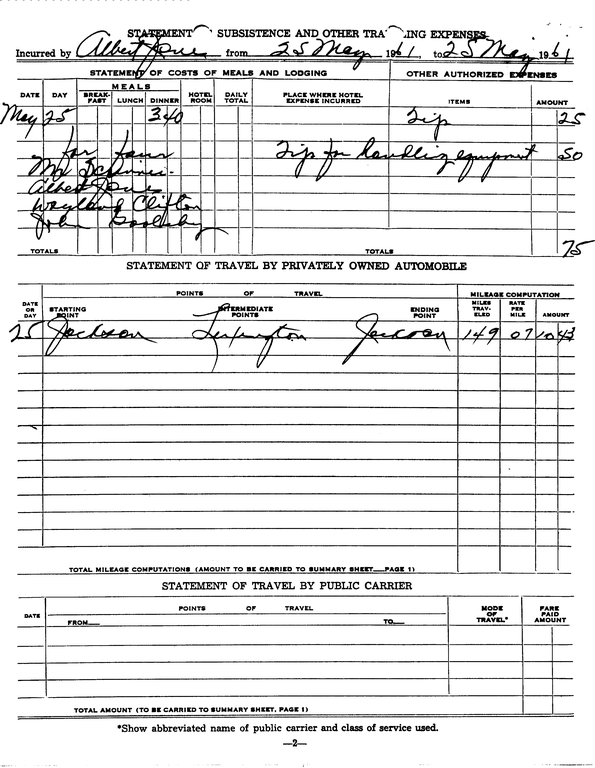 STATEMENT SUBSISTENCE AND OTHER TRA ING EXPENSES
Incurred by Albert Jones from 25 May 1961, to 25 May 1961
STATEMENT OF COSTS OF MEALS AND LODGING OTHER AUTHORIZED EXPENSES
DATE DAY MEALS BREAK-FAST LUNCH DINNER HOTEL ROOM DAILY TOTAL PLACE WHERE HOTEL EXPENSE INCURRED ITEMS AMOUNT
May 25 340 Tip 25
for four Tip for handling equipment 50
Mr
Albert Jones
Wayland Clifton
John
TOTALS TOTALS 75
STATEMENT OF TRAVEL BY PRIVATELY OWNED AUTOMOBILE
POINTS OF TRAVEL MILEAGE COMPUTATION
DATE OR DAY STARTING POINT INTERMEDIATE POINTS ENDING POINT MILES TRAV-ELED RATE PER MILE AMOUNT
25 Jackson Lexington Jackson 149 07 10 43
TOTAL MILEAGE COMPUTATIONS (AMOUNT TO BE CARRIED TO SUMMARY SHEET—PAGE 1)
STATEMENT OF TRAVEL BY PUBLIC CARRIER
DATE POINTS OF TRAVEL MODE OF TRAVEL* FARE PAID AMOUNT
FROM— TO—
TOTAL AMOUNT (TO BE CARRIED TO SUMMARY SHEET, PAGE 1)
*Show abbreviated name of public carrier and class of service used.
—2—